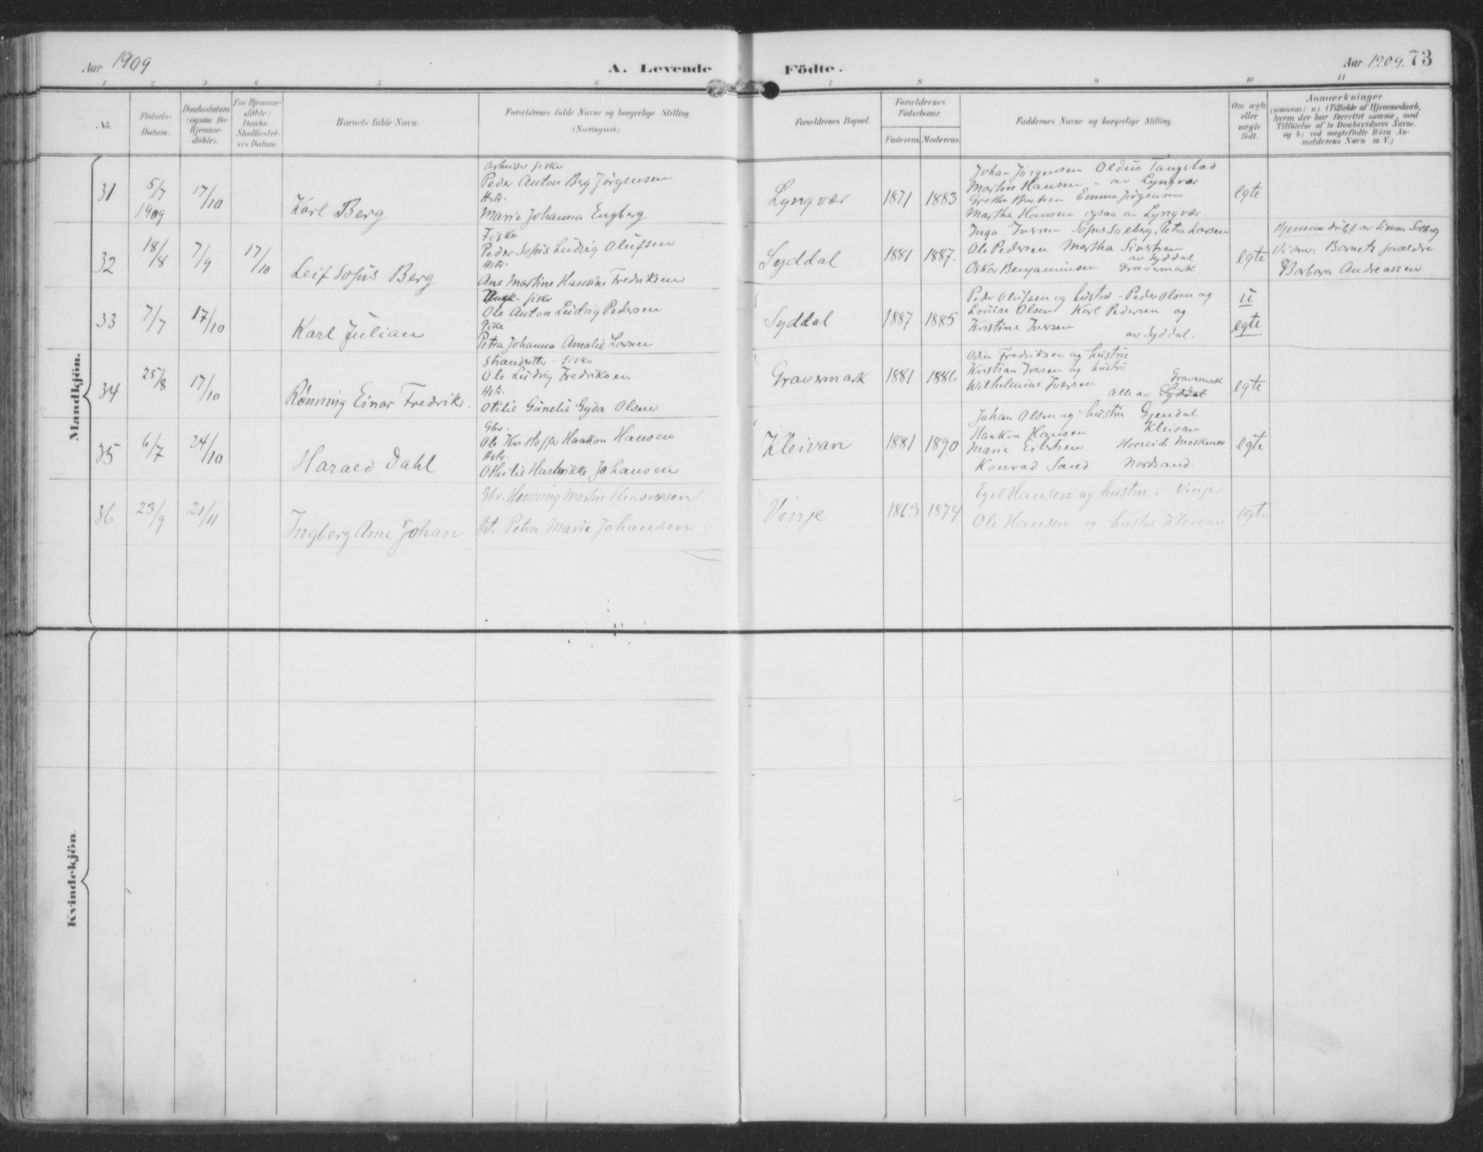 Aar 1909
A. Levende Födte.
Aar 1909. 73
1 2 3 4 5 6 7 8 9 10 11
No.
Födsels-Datum.
Daabsdatum (ogsaa for Hjemmedöbte).
For Hjemmedöbte: Daabs-Stadfæstelses Datum.
Barnets fulde Navn.
Forældrenes fulde Navne og borgerlige Stilling (Næringsvei).
Forældrenes Bopæl.
Forældrenes Födselsaar.
Faderens Moderens.
Faddernes Navne og borgerlige Stilling.
Om ægte eller uægte født.
Anmærkninger
Mandkjön.
31 5/7 1909 17/10 Karl Berg
Arbeider fisker
Peder Anton Berg Jørgensen
Hstr.
Marie Johanna Engberg
Lyngvær 1871 1883
Johan Jørgensen Oldus Tangstad
Martin Hansen - av Lyngvær.
Grethe Emma Jørgensen
Martha Hansen ogsaa av Lyngvær.
egte
32 18/8 7/9 17/10 Leif Sofus Berg
Fisker
Peder Sofus Ludvig Olufsen
Hstr.
Ane Martine Hansine Fredriksen
Syddal 1881 1887.
Inga Iversen Sofus Solberg, Petra Larsen
Ole Pedersen Martha Sivertsen
av Syddal
Oskar Benjaminsen Gravermark.
egte
Hjemmedøbt av Simon Solberg
Vidner Barnets forældre
Barbara Andreassen
33 7/7 17/10 Karl Julian
Ungk. fisker
Ole Anton Ludvig Pedersen
Pike
Petra Johanna Amalie Larsen
Syddal 1887 1885
Peder Olufsen og hustru - Peder Olsen og
Louise Olsen Karl Pedersen og
Kristine Iversen av Syddal.
u
egte
34 25/8 17/10 Rönning Einar Fredrik.
Strandsitter - fisker
Ole Ludvig Fredriksen
Hstr.
Otilie Gunelie Gyda Olsen
Gravermark 1881 1886
Odin Fredriksen og hustru
Kristian Iversen og hustru
Wilhelmine Iversen Gravermark
alle av Syddal
egte
35 6/7 24/10 Harald Dahl
Gbr.
Ole Kristoffer Haakon Hansen
Hstr.
Othilie Hartvikke Johansen
Kleivan 1881 1890
Johan Olsen og hustru Gjendal
Haakon Hansen Kleivan
Marie Eilertsen Horseid Moskenes
Konrad Sand Nordsand.
egte
36 23/9 21/11 Ingberg Arne Johan
Gbr. Henning Martin
Hstr. Petra Marie Johansen
Vinje 1863 1874
Egil Hansen og hustru. Vinje
Ole Hansen og hustru Kleivan
egte
Kvindekjön.